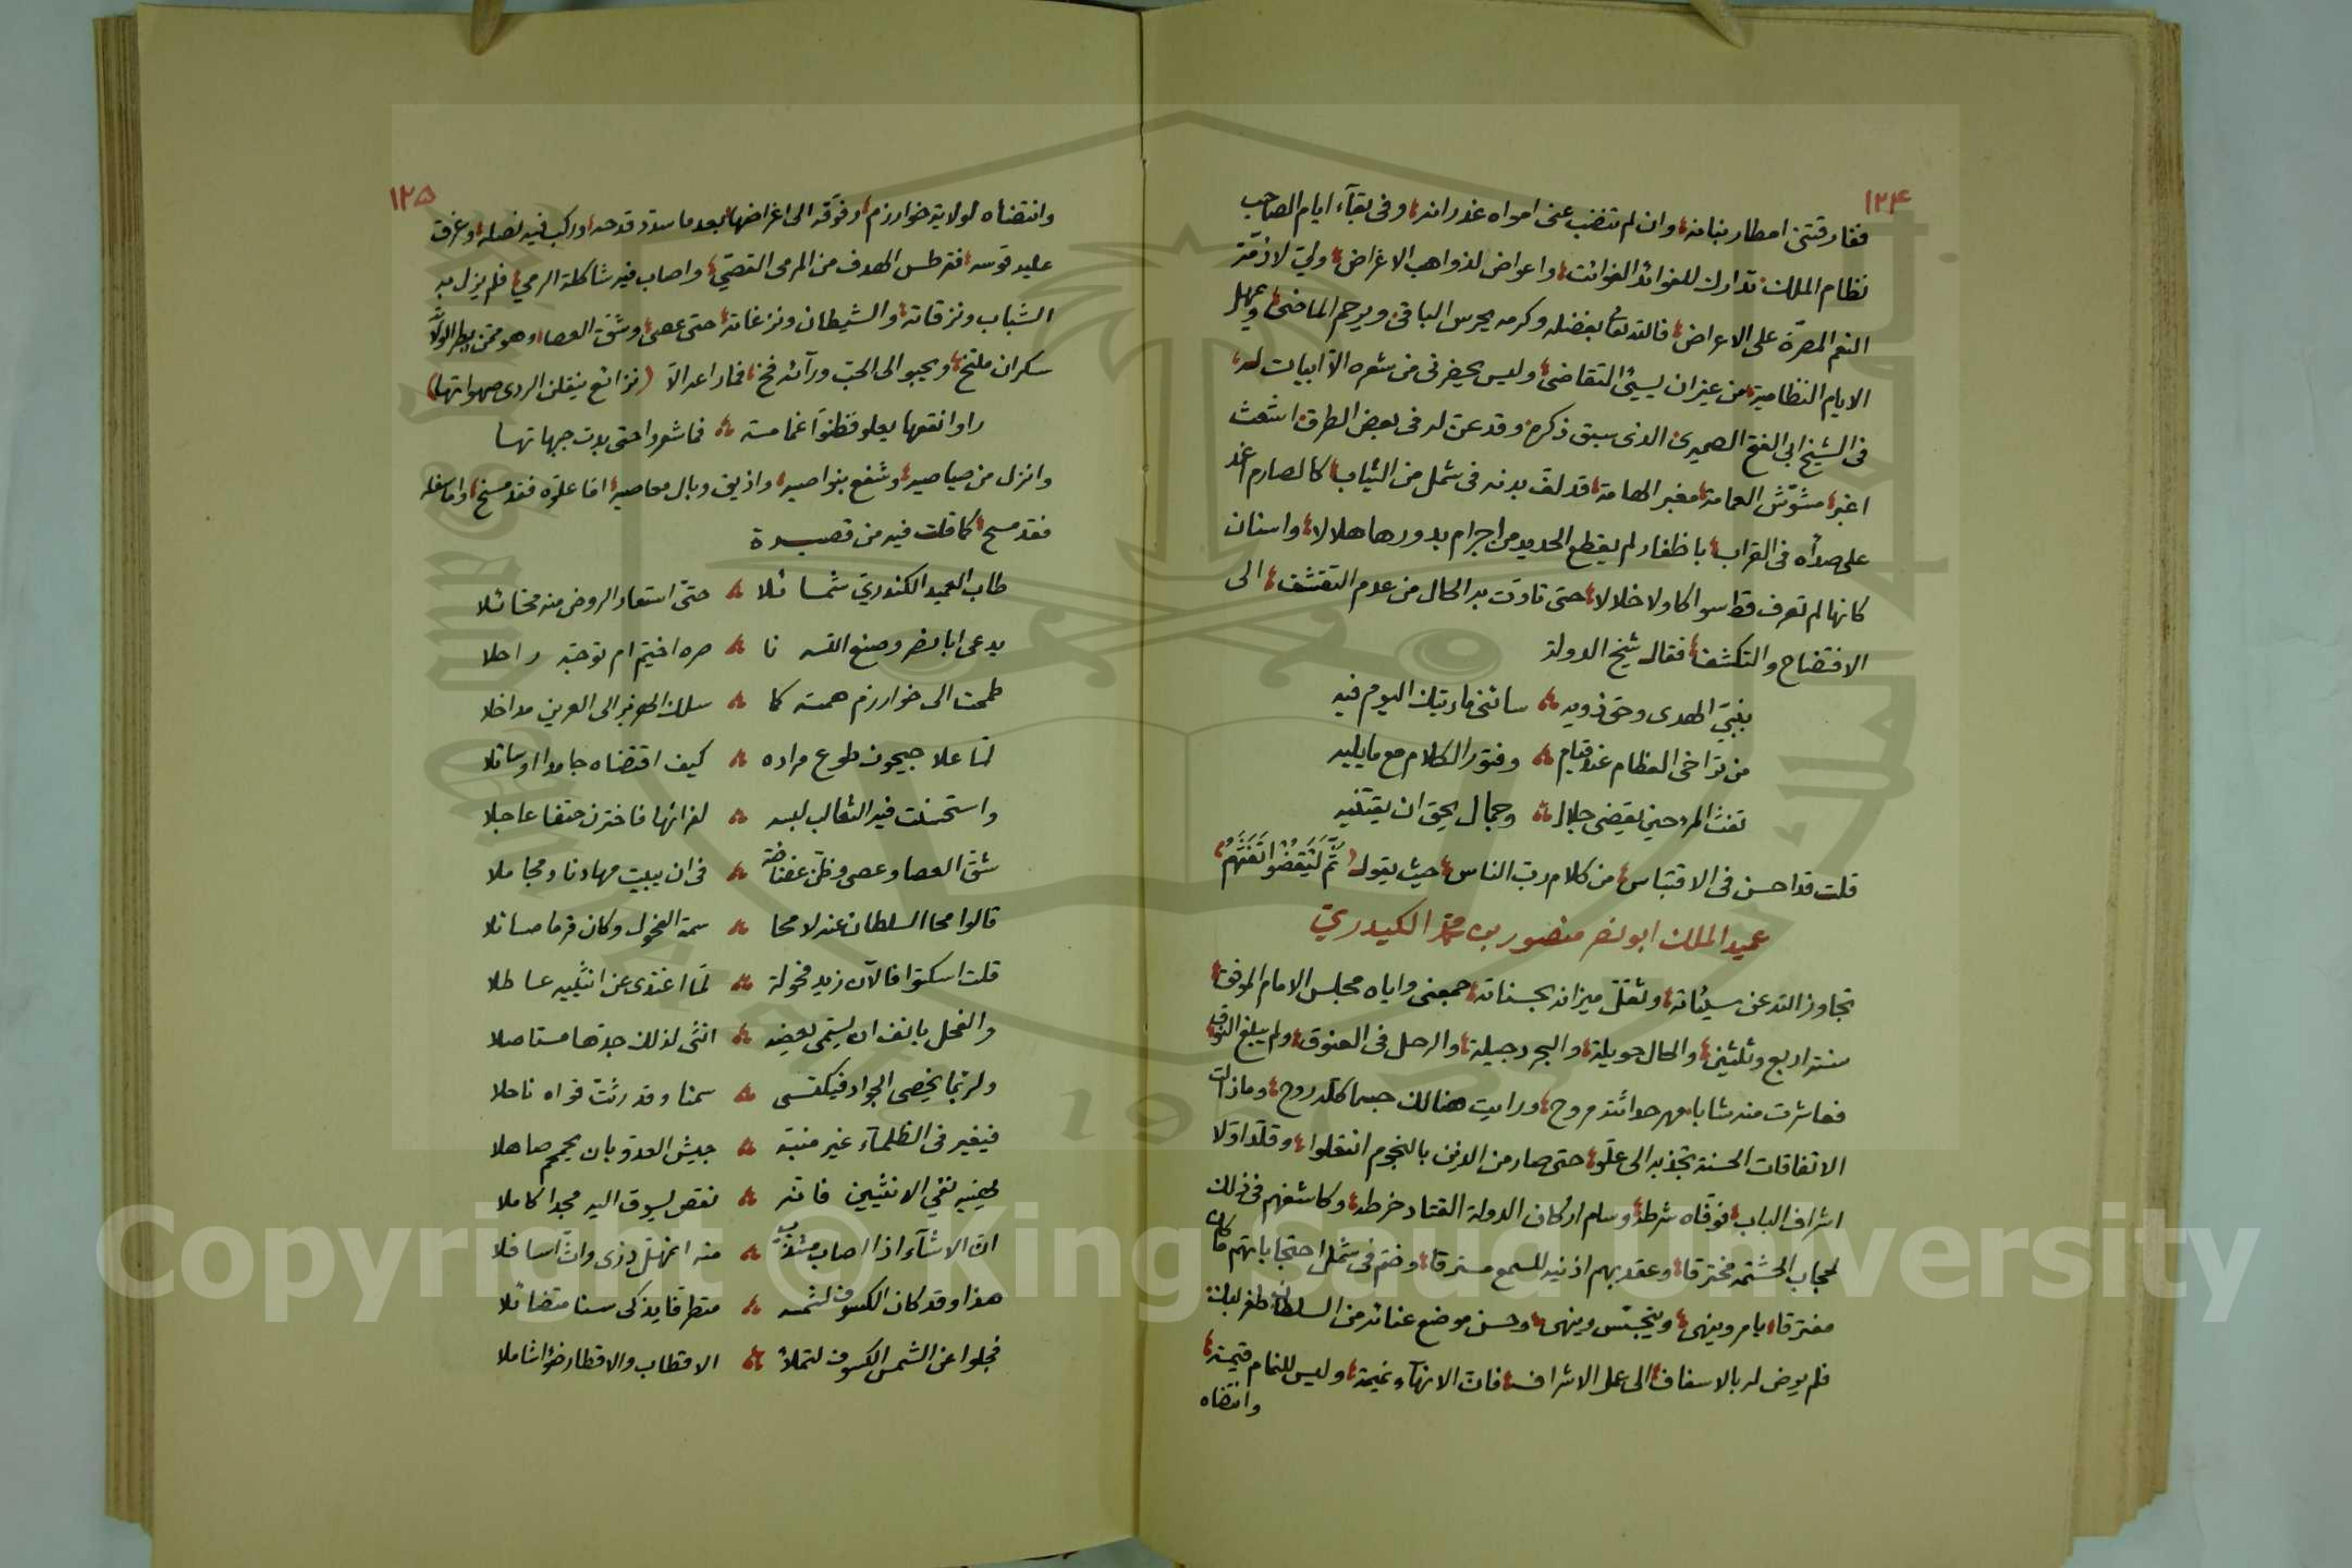 ١٢٤
ففارقتنى امطار بنانه، وان لم تنضب عنى امواه غدرانه، وفى بقآء ايام الصاحب
نظام الملك تدارك للفوائد الفوائت، واعواض لذواهب الاغراض، ولى لازمة
النعم المصرّة على الاعراض، فالله تعالى بفضله وكرمه يحرس الباقى ويرحم الماضى، ويمهل
الايام النظامية من غير ان يسيئ التقاضى، وليس يحضرنى من شعره الّا ابيات له،
فى الشيخ ابى الفتح الصميرى الذى سبق ذكره وقد عنّ له فى بعض الطرق اشعث
اغبر، مشوّش العمامة، مغبر الهامة، قد لفّ بدنه فى شمل من الثياب، كالصارم اغمد
على صداه فى القراب، باظفار لم يقطع الحديد من اجرام بدورها هلالا، واسنان
كانها لم تعرف قط سواكا ولا خلالا، حتى تادت به الحال من عدم التقشف، الى
الافتضاح والتكشف، فقال شيخ الدولة
بنبىّ الهدى وحق ذويه ساءنى ما رتيك اليوم فيه
من تراخى العظام عند قيام وفتور الكلام مع ما يليه
تفث المرء حين يقضى جلال وجمال يحق ان يقتنيه
قلت قد احسن فى الاقتباس، من كلام ربّ الناس، حيث يقول (ثُمَّ لْيَقْضُوا تَفَثَهُمْ)،
عميد الملك ابو نصر منصور بن محمد الكيدرىّ
تجاوز الله عن سيئاته، وثقّل ميزانه بحسناته، جمعنى واياه مجلس الامام الموفق،
سنة اربع وثلثين، والحال حويلة، والبجد رجيلة، والرحل فى الصنوق، ولم يبلغ النوق،
فعاشرت منه شابا مهر حداثته مروح، ورايت هنالك جسما كله روح، وما زالت
الاتفاقات الحسنة تجذبه الى علّو، حتى صار من الذين بالنجوم انتعلوا، وقلّد اوّلا
اشراف الباب، فوفّاه شرطه، وسام اركان الدولة القتاد خرطه، وكاشفهم فى ذلك
لحجاب الحشمة مخترقا، وعقد بهم اذنيه للسمع مسترقا، وضم فى شمل احتجاباتهم ما كان
مفترقا، يامر وينهى، ويتجسّس وينهى، وحسن موضع عنائه من السلطان طغرلبك
فلم يرض له بالاسفاف، الى عمل الاشراف، فان الانهآء نميمة، وليس للنمام قيمة،
وانتضاه
١٢٥
وانتضاه لولاية خوارزم، وفوّقه الى اغراضها، بعد ما سدّد قدحه، وركب فيه نصله، وغرق
عليه قوسه، فقرطس الهدف من المرمى القصىّ، واصاب فيه شاكلة الرمى، فلم يزل به
الشباب ونزقاته، والشيطان ونزغاته، حتى عصى، وشقّ العصا، وهو ممّن يطر الولاّة
سكران ملتخ، ويحبو الى الحبّ ورآئه فخ، فما راعه الّا (نزائع ينقلن الردى صهواتها)
راوا نقعها يعلو فظنوا غمامة فما شعروا حتى بدت جبهاتها
وانزل من صياصيه، وشفع بنواصيه، واذيق وبال معاصيه، امّا علوّه فقد مسخ، واما سفله
فقد مسح، كما قلت فيه من قصيدة
طاب العميد الكندرىّ شمائلا حتى استعار الروض منه مخائلا
يدعى ابا نصر وصنع الله نا صره اخيّم ام توجّه راحلا
طمحت الى خوارزم همته كما سلك الهزبر الى العرين مداخلا
لمّا علا جيحون طوع مراده كيف اقتضاه جامدا او سائلا
واستحسنت فيه الثعالب لبسه لفرائها فاخترن حتفا عاجلا
شقّ العصا وعصى وظن غضاضة فى ان يبيت مهادنا ومجاملا
قالوا محا السلطان عنه لا محا سمة الفحول وكان قرما صائلا
قلت اسكتوا فالآن زيد فحولة لمّا اغتدى عن انثييه عاطلا
والفحل يانف ان يسمّى بعضه انثى لذلك جذّها مستاصلا
ولربّما يخصى الجواد فيكتسى سمنا وقد رثّت قواه ناحلا
فيغير فى الظلمآء غير منبّه جيش العدو بان يحمحم صاهلا
يهنيه نفى الانثيين فانه نقص يسوق اليه مجدا كاملا
انّ الاشآء اذا اصاب مشذّب منه اتمهلّ ذرى واثّ اسافلا
هذا وقد كان الكسوف لشمسه متطرقا يذكى سنا متضائلا
فجلوا عن الشمس الكسوف لتملا الاقطاب والاقطار ضوا شاملا